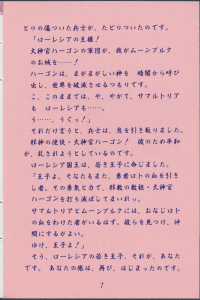 とりの傷ついた兵士が、たどりついたのです。
「ローレシアの王様!
大神官ハーゴンの軍団が、我がムーンブルク
のお城を……!
ハーゴンは、まがまがしい神を 暗闇から呼び
出し、世界を破滅させるつもりです。
こ、このままでは、や、やがて、サマルトリア
も ローレシアも……。
う……、うぐっ!」
それだけ言うと、兵士は、息を引き取りました。
邪神の使徒・大神官ハーゴン! 彼のため平和
が、乱されようとしているのです。
ローレシア国王は、若き王子に命じました。
「王子よ。そなたもまた、勇者ロトの血を引き
し者。その勇気と力で、邪教の教祖・大神官
ハーゴンを打ち滅ぼしてまいれっ。
サマルトリアとムーンブルクには、おなじロト
の血をわけた者がいるはず。彼らを見つけ、仲
間にするがよい。
ゆけ、王子よ!」
そう、ローレシアの若き王子、それが、あなた
です。あなたの旅は、再び、はじまったのです。
7